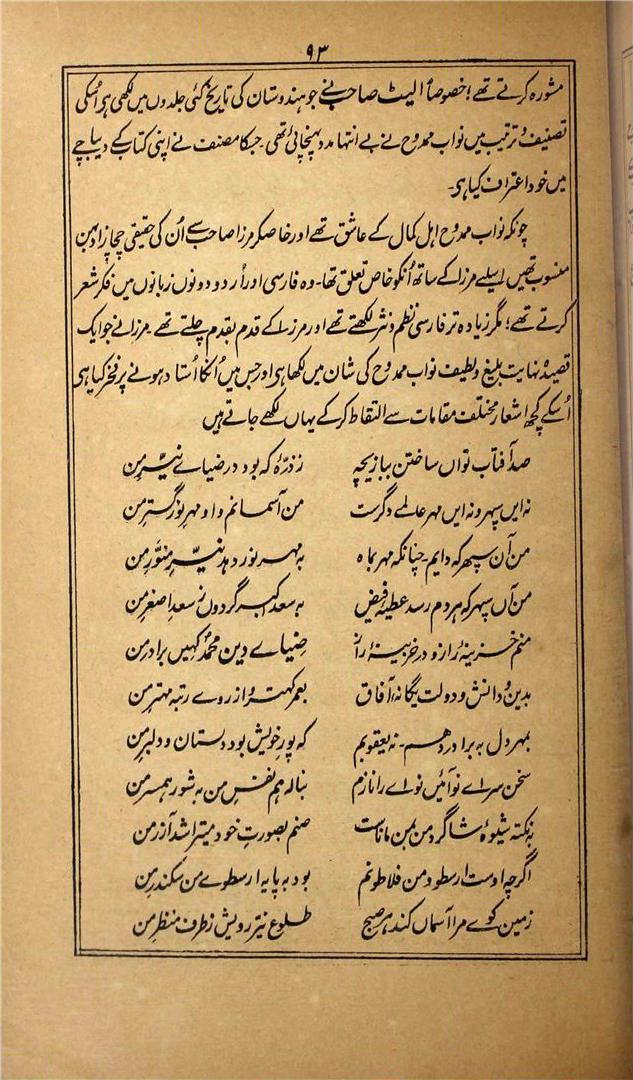 ۹۳
مشورہ کرتے تھے؛ خصوصاً الیٹ صاحب نے جو ہندوستان کی تاریخ کئی جلدوں میں لکھی ہی اُسکی
تصنیف و ترتیب میں نواب ممدوح نے بے انتہا مدد پہنچائی تھی۔ جسکا مصنف نے اپنی کتاب کے دیباچے
میں خود اعتراف کیا ہی۔
چونکہ نواب ممدوح اہل کمال کے عاشق تھے اور خاصکر مرزا صاحب سے اُن کی حقیقی چچازاد بہن
منسوب تھیں اسلیے مرزا کے ساتھ اُنکو خاص تعلق تھا۔ وہ فارسی اور اُردو دونوں زبانوں میں فکر شعر
کرتے تھے؛ مگر زیادہ تر فارسی نظم و نثر لکھتے تھے اور مرزا کے قدم بقدم چلتے تھے۔ مرزا نے جو ایک
قصیدہ نہایت بلیغ و لطیف نواب ممدوح کی شان میں لکھا ہی اور جس میں اُنکا اُستاد ہونے پر فخر کیا ہی
اُسکے کچھ اشعار مختلف مقامات سے التقاط کرکے یہاں لکھے جاتے ہیں
صد آفتاب تواں ساختن ببازیچہ زذرّۂ کہ بود در ضیاے نیّرِ من
نہ ایں سپہر و نہ ایں مہر عالمے دگرست من آسمانم و او مہرِ نور گسترِ من
من آں سپہر کہ دایم۔ چنانکہ مہر بماہ بہ مہر نور دہد نیّرِ منوّرِ من
من آں سپہر کہ ہردم رسد عطیۂ فیض بہ سعد اکبر گردوں ز سعدِ اصغرِ من
منم خزینۂ راز و در خزینۂ راز ضیاے دین محمدؐ کہیں برادرِ من
بدین و دانش و دولت یگانۂ آفاق بعمر کہتر و از روے رتبہ مہترِ من
بمہر دل بہ برادر دہم۔ نہ یعقوبم کہ پورِ خویش بود دلستان و دلبرِ من
سخن سراے نو آئیں نواے را نازم بنالہ ہم نفسِ من بہ شور ہمسرِ من
بہ نکتہ شیوۂ شاگرد من بمن ماناست صنم بصورتِ خود میتراشد آزرِ من
اگرچہ اوست ارسطو و من فلاطونم بود بہ پایہ ارسطوے من سکندرِ من
زمین کوے مرا آسماں کند ہر صبح طلوع نیّرِ رویش ز طرف منظرِ من